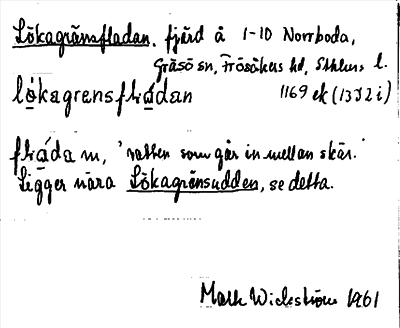 Lökagränsfladan. fjärd å 1-10 Norrboda,
Gräsö sn, Frösåkers hd, Sthlms l.
lö̀kagrensflàdan 1169 ek (13J2i)
flàda m, 'vatten som går in mellan skär.'
Ligger nära Lökagränsudden, se detta.
Mark Wickström 1961